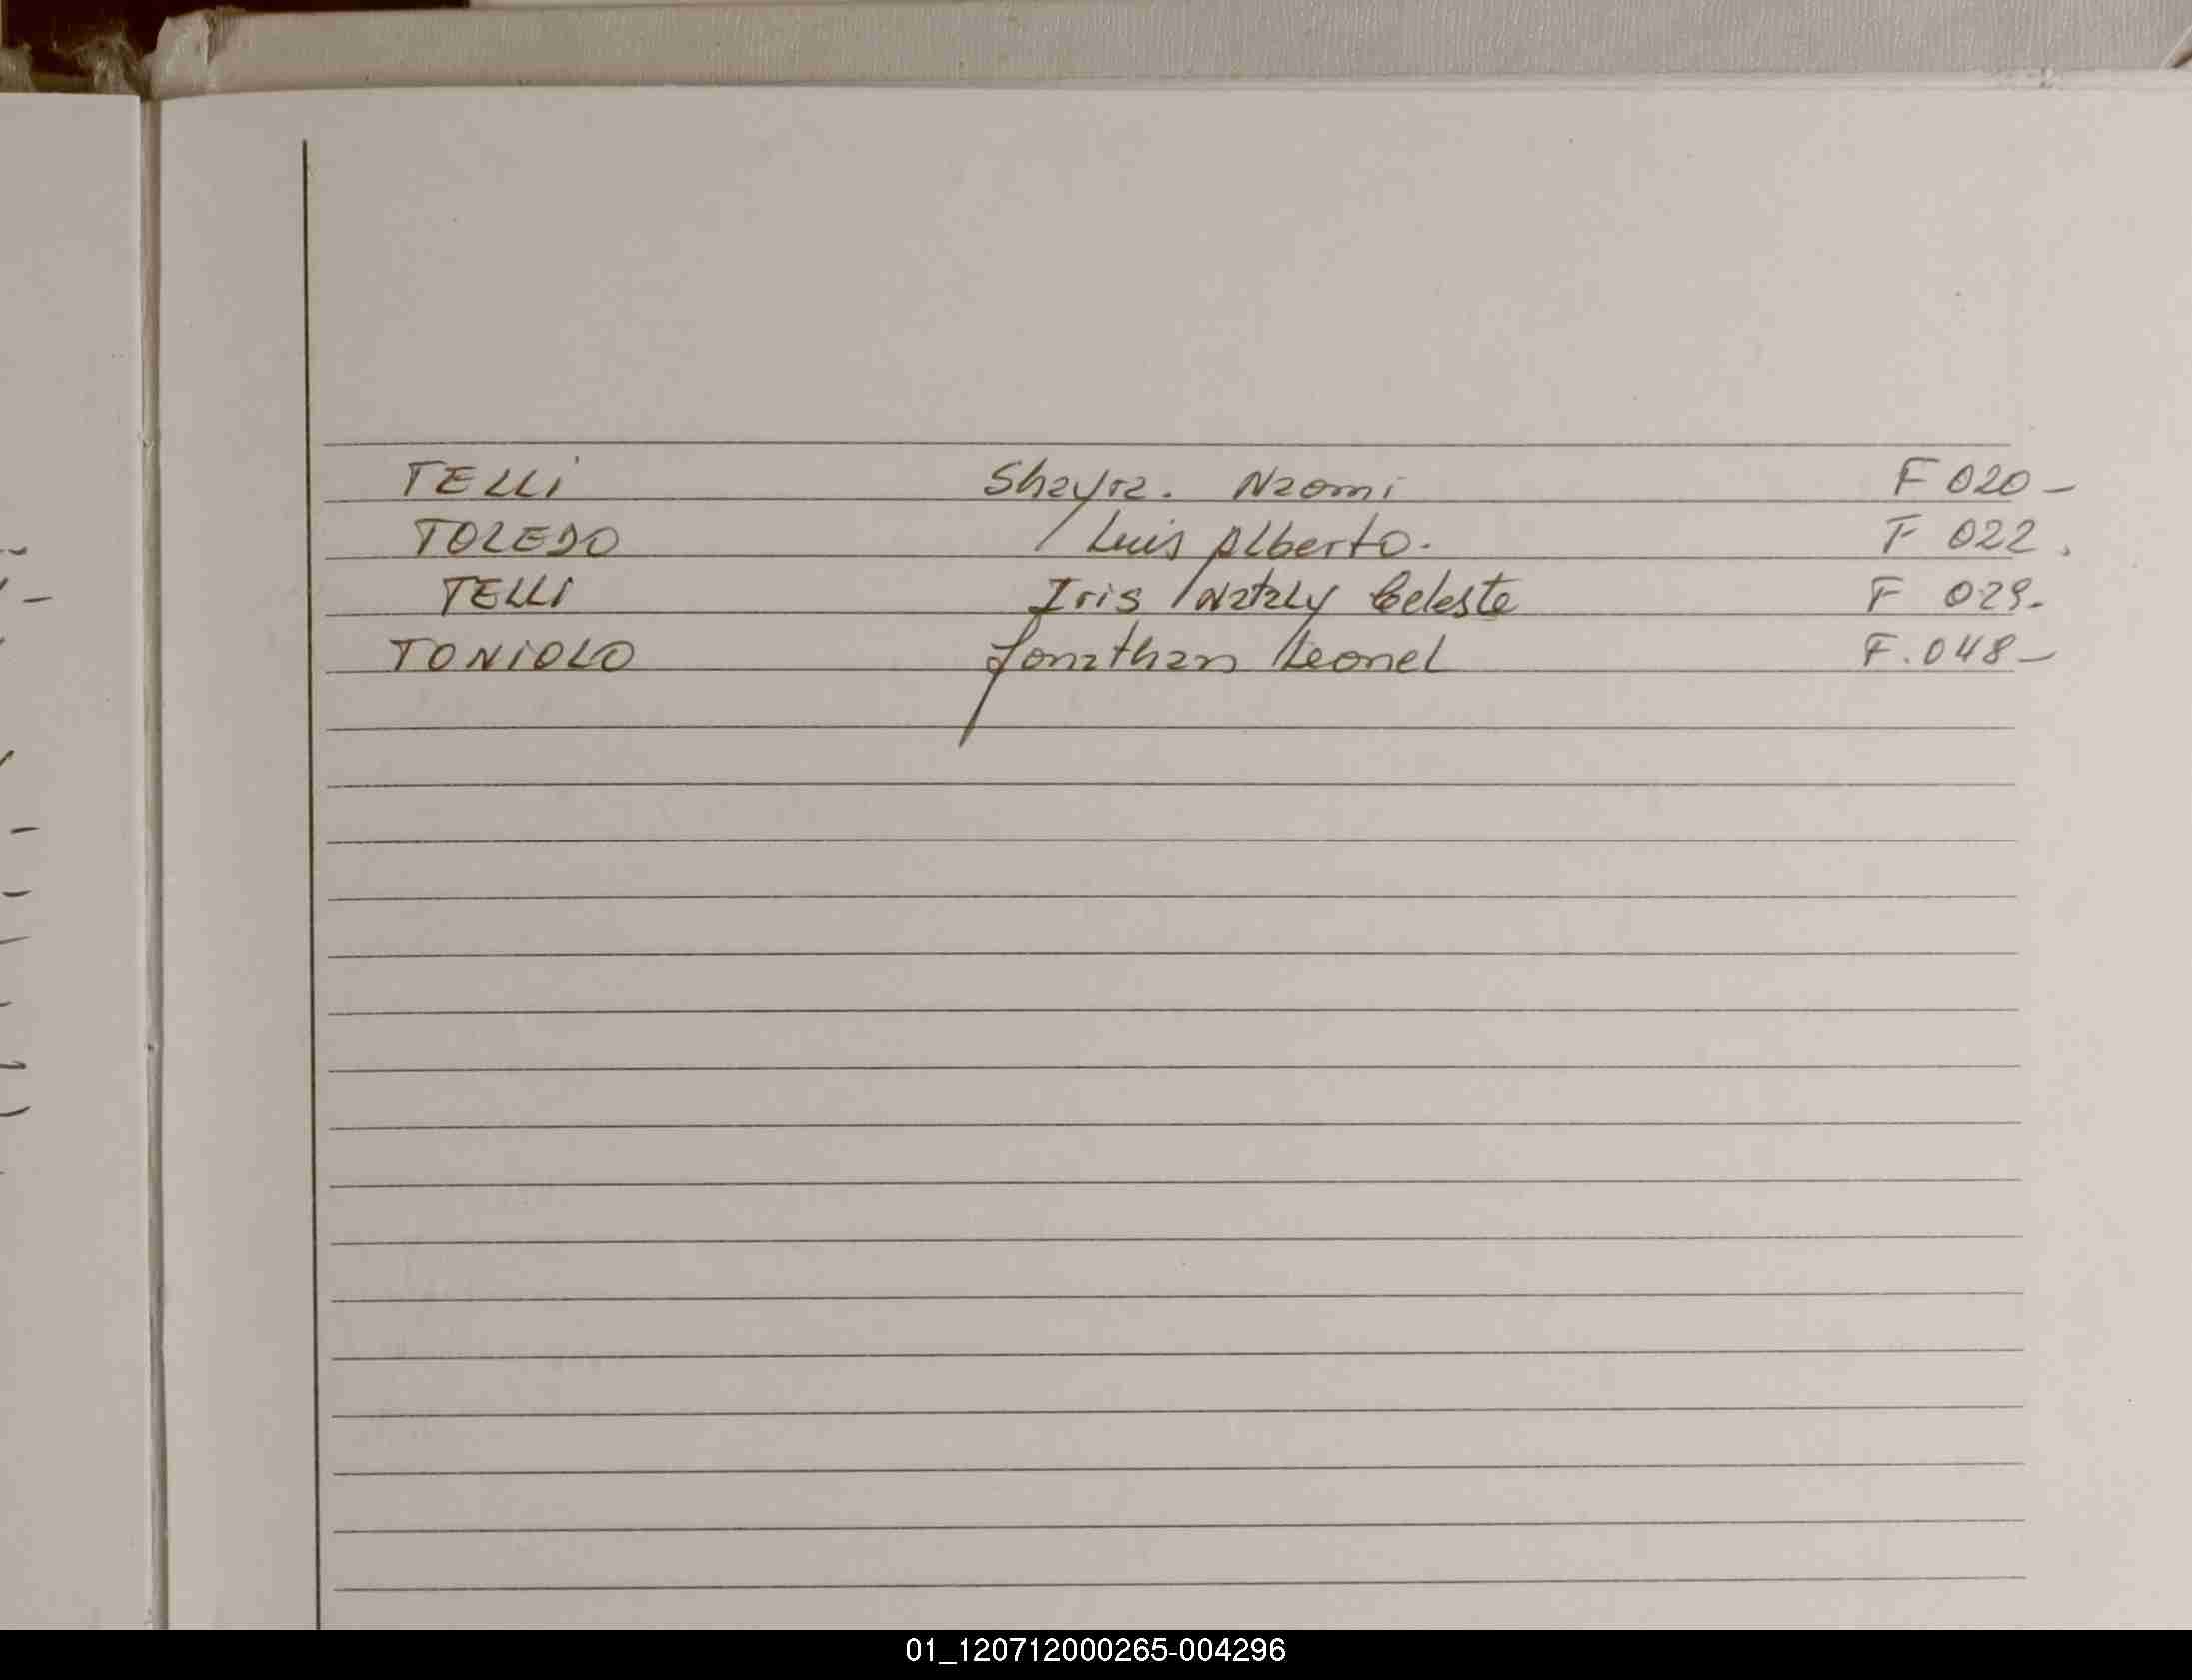 TELLi Shayra. Naomi F 020-
TOLEDO Luis Alberto. F 022.
TELLI Iris Nataly Celeste F 029-
TONiOLO Jonathan Leonel F. 048-
01_120712000265-004296